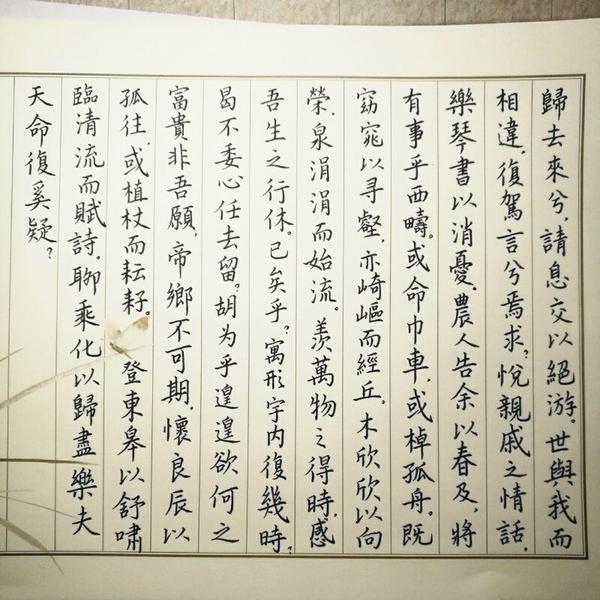 歸去來兮,請息交以絕游。世與我而
相違,復駕言兮焉求?悅親戚之情話,
樂琴書以消憂。農人告余以春及,將
有事乎西疇。或命巾車,或棹孤舟。既
窈窕以寻壑,亦崎嶇而經丘。木欣欣以向
榮,泉涓涓而始流。羨萬物之得時,感
吾生之行休。已矣乎?寓形宇内復幾時?
曷不委心任去留?胡为乎遑遑欲何之
富貴非吾願,帝鄉不可期,懷良辰以
孤往,或植杖而耘耔。登東皋以舒嘯
臨清流而賦詩。聊乘化以歸盡樂夫
天命復奚疑?